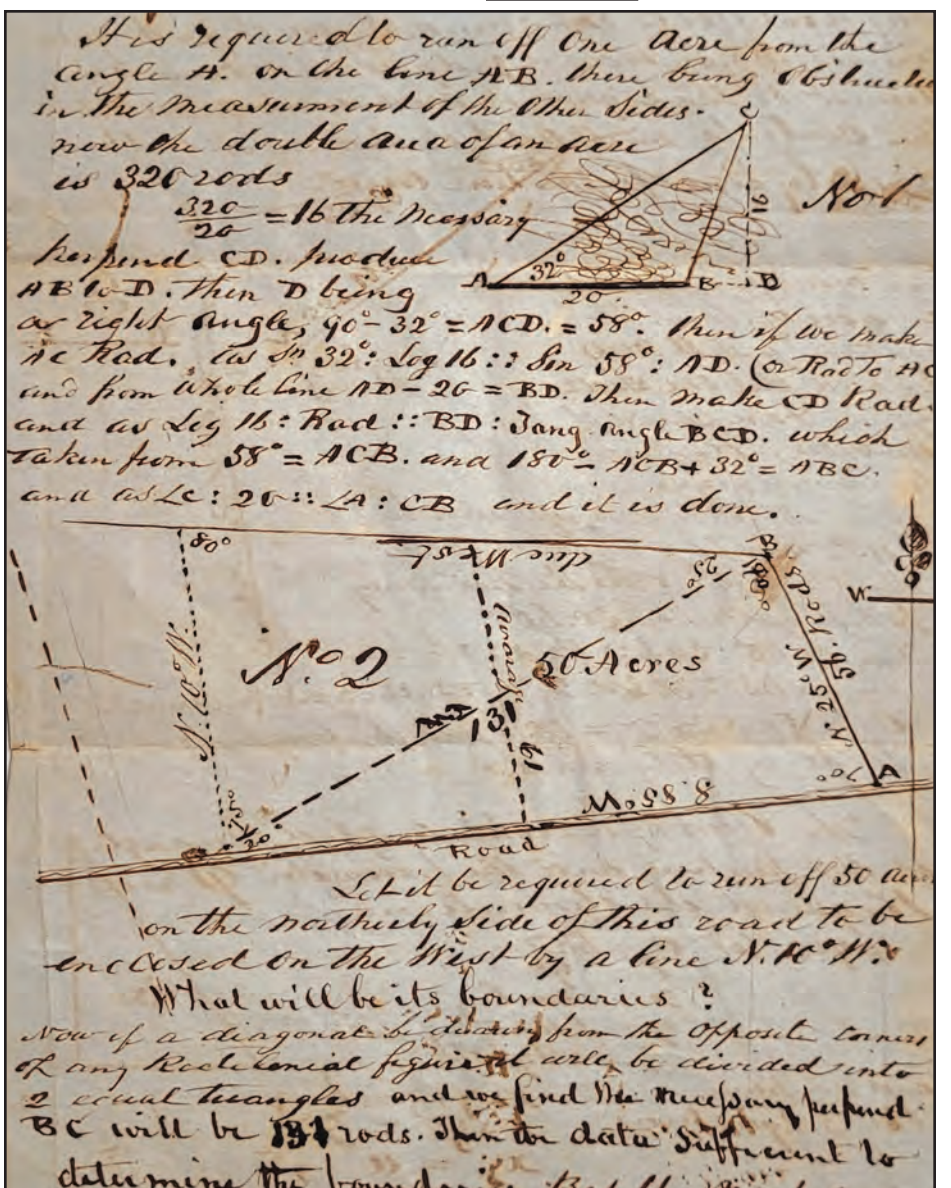 It is required to run off One Acre from the
angle A. on the line AB. there being Obstructi
in the measurment of the Other Sides.
now the double area of an acre
is 320 rods
320/20 = 16 the necessary
perpend. CD. produce
AB to D. then D being
a right angle, 90°- 32° = ACD. = 58°. then if we make
AC Rad. as Sn 32°: Leg 16 :: Sin 58°: AD. (or Rad to AC
and from whole line AD - 20 = BD. Then make CD Rad.
and as Leg 16 : Rad :: BD : Tang. angle BCD. which
taken from 58° = ACB. and 180° - ACB + 32° = ABC.
and as LC : 20 :: LA : CB and it is done.
C
16
No 1
A 32° B D
20
80°
due West
B
125°
56. Rods
N 25° W
W
N. 10° W.
No 2
50 Acres
131
61
70° A
S. 85° W
75°
20°
Road
Let it be required to run off 50 acr
on the northerly Side of this road to be
enclosed on the West by a line N. 10° W.
What will be its boundaries ?
Now if a diagonal be drawn from the Opposite corners
of any figure it will be divided into
2 equal triangles and we find the necessary perpend.
BC will be 131 rods. Then the data Sufficient to
determine the